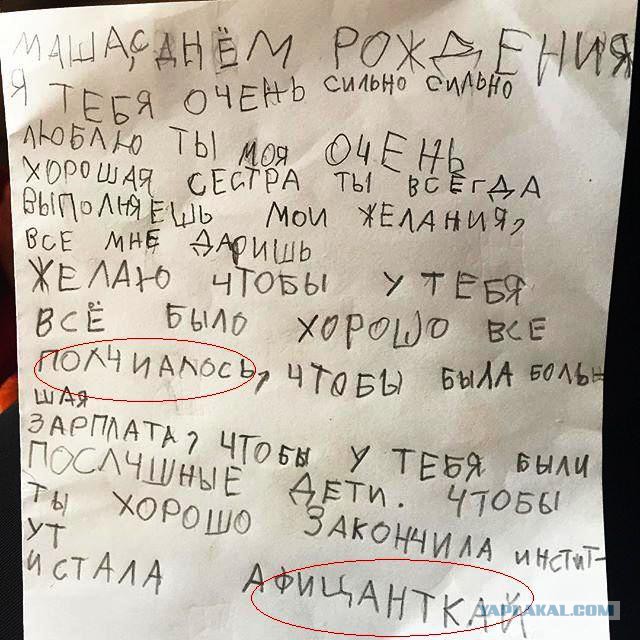 МАША, С ДНЁМ РОЖДЕНИЯ
Я ТЕБЯ ОЧЕНЬ СИЛЬНО СИЛЬНО
ЛЮБЛЮ ТЫ МОЯ ОЧЕНЬ
ХОРОШАЯ СЕСТРА ТЫ ВСЕГДА
ВЫПОЛНЯЕШЬ МОИ ЖЕЛАНИЯ,
ВСЕ МНЕ ДАРИШЬ
ЖЕЛАЮ ЧТОБЫ У ТЕБЯ
ВСЁ БЫЛО ХОРОШО ВСЕ
ПОЛЧИАЛОСЬ, ЧТОБЫ БЫЛА БОЛЬ-
ШАЯ
ЗАРПЛАТА, ЧТОБЫ У ТЕБЯ БЫЛИ
ПОСЛЧШНЫЕ ДЕТИ. ЧТОБЫ
ТЫ ХОРОШО ЗАКОНЧИЛА ИНСТИТ-
УТ
И СТАЛА АФИЩАНТКАЙ
YAPLAKAL.COM